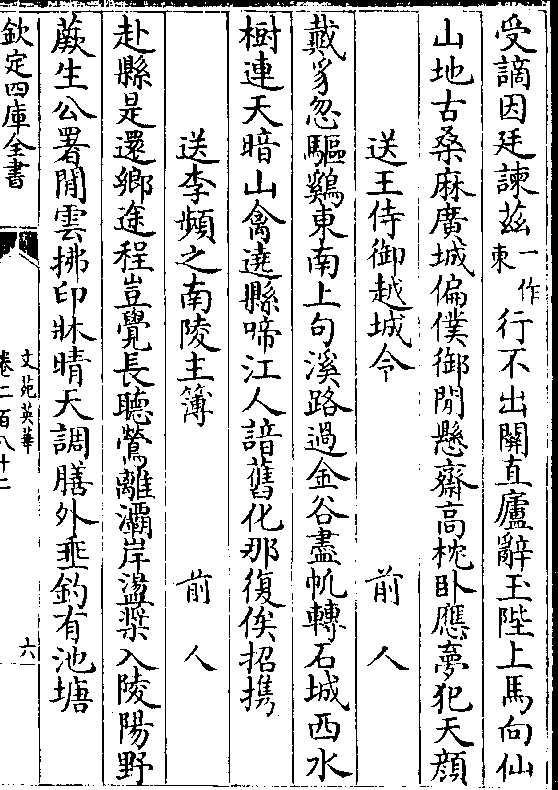 受謫因廷諫茲一作東行不出關直廬辭玉陛上馬向仙
山地古桑麻廣城偏僕御閒懸齋高枕卧應夢犯天顔
送王侍御越城令　前人
戴豸忽驅雞東南上句溪路過金谷盡帆轉石城西水
樹連天暗山禽遶縣啼江人諳舊化那復俟招携
送李頻之南陵主簿　前人
赴縣是還鄉途程豈覺長聽鶯離灞岸盪槳入陵陽野
蕨生公署閒雲拂印牀晴天調膳外垂釣有池塘
欽定四庫全書
文苑英華
卷二百八十二
六